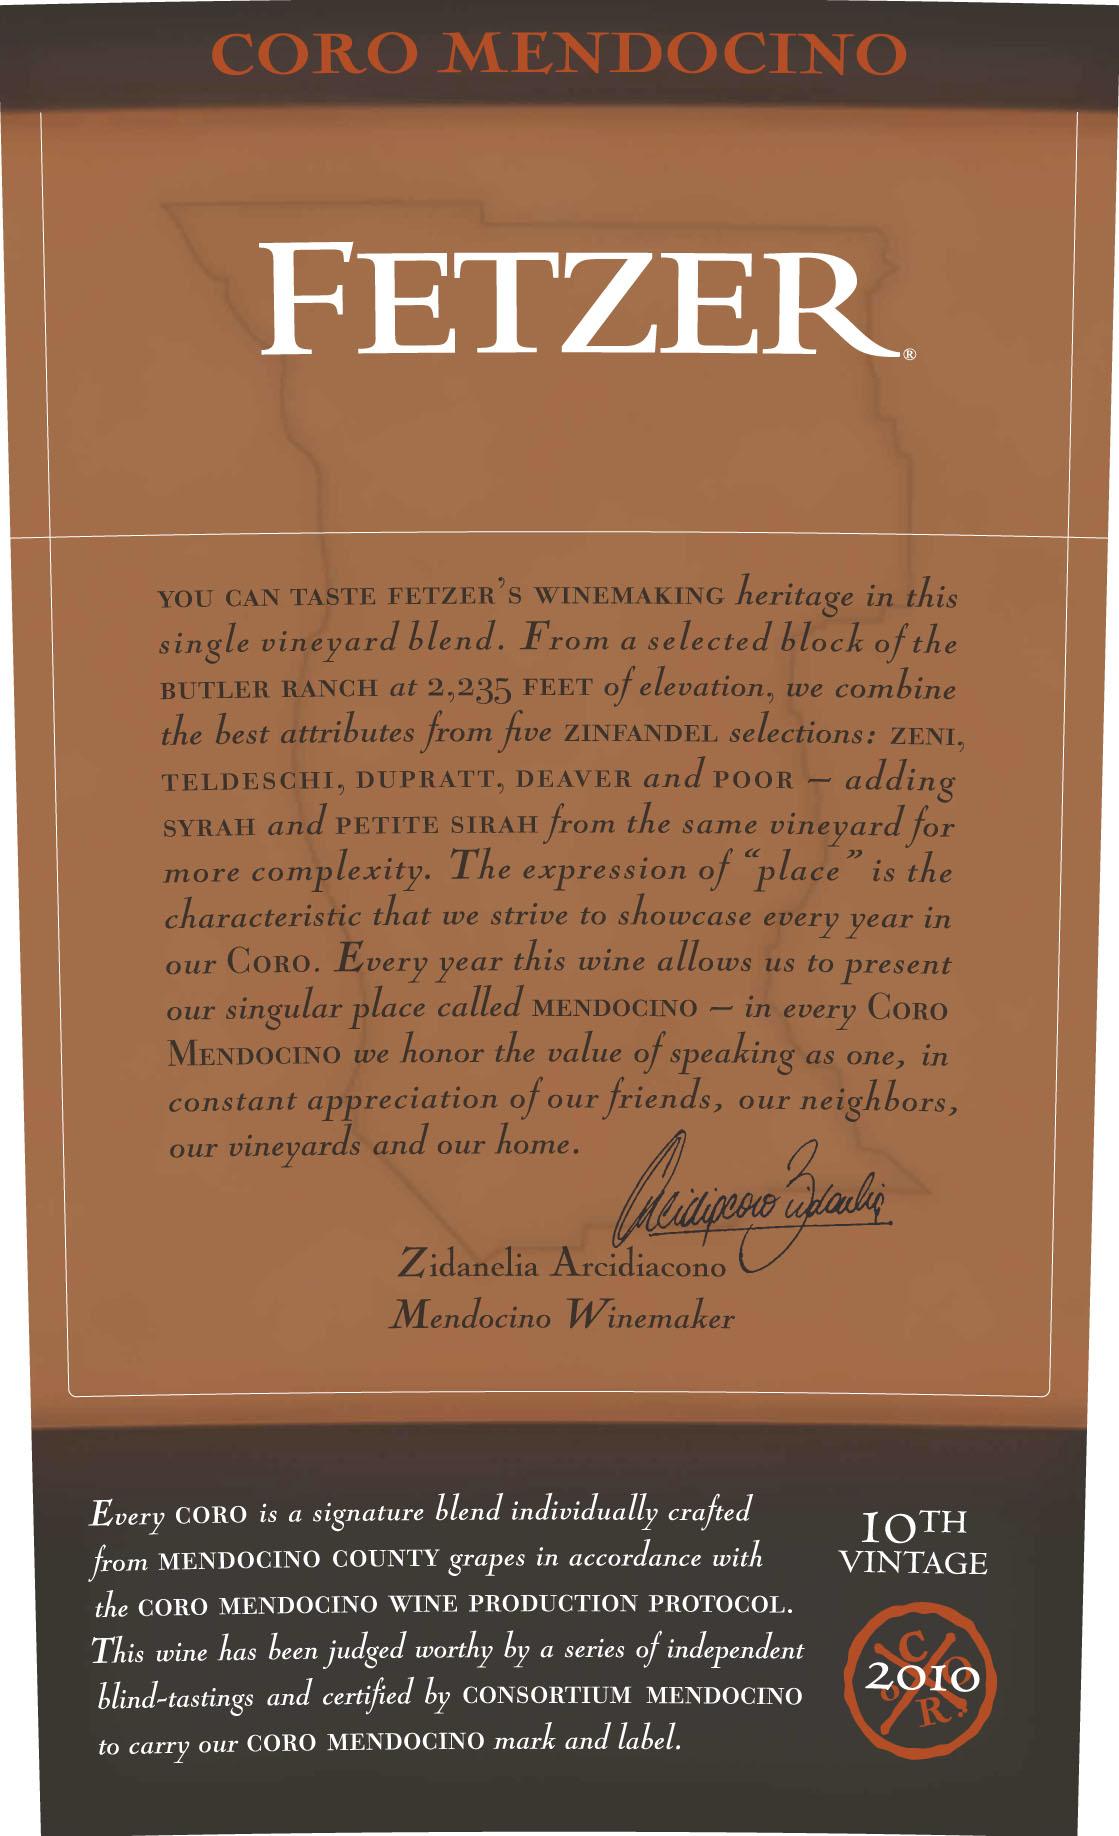 CORO MENDOCINO
FETZER®
YOU CAN TASTE FETZER'S WINEMAKING heritage in this
single vineyard blend. From a selected block of the
BUTLER RANCH at 2,235 FEET of elevation, we combine
the best attributes from five ZINFANDEL selections: ZENI,
TELDESCHI, DUPRATT, DEAVER and POOR – adding
SYRAH and PETITE SIRAH from the same vineyard for
more complexity. The expression of “place” is the
characteristic that we strive to showcase every year in
our CORO. Every year this wine allows us to present
our singular place called MENDOCINO – in every CORO
MENDOCINO we honor the value of speaking as one, in
constant appreciation of our friends, our neighbors,
our vineyards and our home.
Arcidiacono Zidanelia
Zidanelia Arcidiacono
Mendocino Winemaker
Every CORO is a signature blend individually crafted
from MENDOCINO COUNTY grapes in accordance with
the CORO MENDOCINO WINE PRODUCTION PROTOCOL.
This wine has been judged worthy by a series of independent
blind-tastings and certified by CONSORTIUM MENDOCINO
to carry our CORO MENDOCINO mark and label.
10TH
VINTAGE
CORO
2010